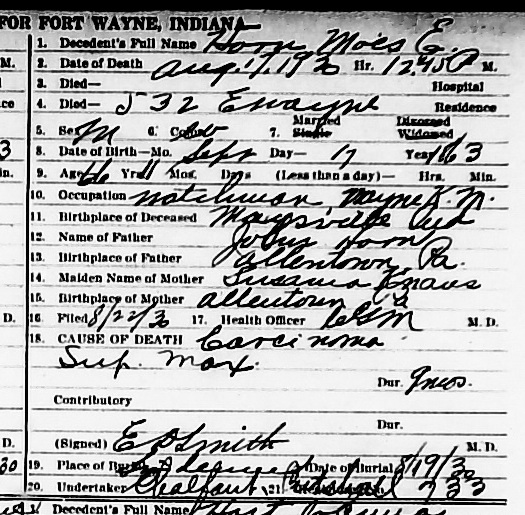 FOR FORT WAYNE, INDIANA
1. Decedent's Full Name Horn Moses E.
2. Date of Death Aug 17, 1930 Hr. 12.45 P M.
3. Died— Hospital
4. Died— 532 E Wayne Residence
5. Sex M 6. Color W 7. Married Single Divorced Widowed
8. Date of Birth—Mo. Sept Day— 17 Year 1863
9. Age 66 Yrs 11 Mos. Days (Less than a day)— Hrs. Min.
10. Occupation Watchman Wayne K. M.
11. Birthplace of Deceased Maysville Ind
12. Name of Father John Horn
13. Birthplace of Father Allentown, Pa.
14. Maiden Name of Mother Susanna
15. Birthplace of Mother Allentown Pa
16. Filed 8/22/30 17. Health Officer M. D.
18. CAUSE OF DEATH Carcinoma
Sup. Max.
Dur. 9 mos.
Contributory
Dur.
(Signed) E P Smith M. D.
19. Place of Burial Date of Burial 8/19/30
20. Undertaker Chalfant 21. 333
Decedent's Full Name